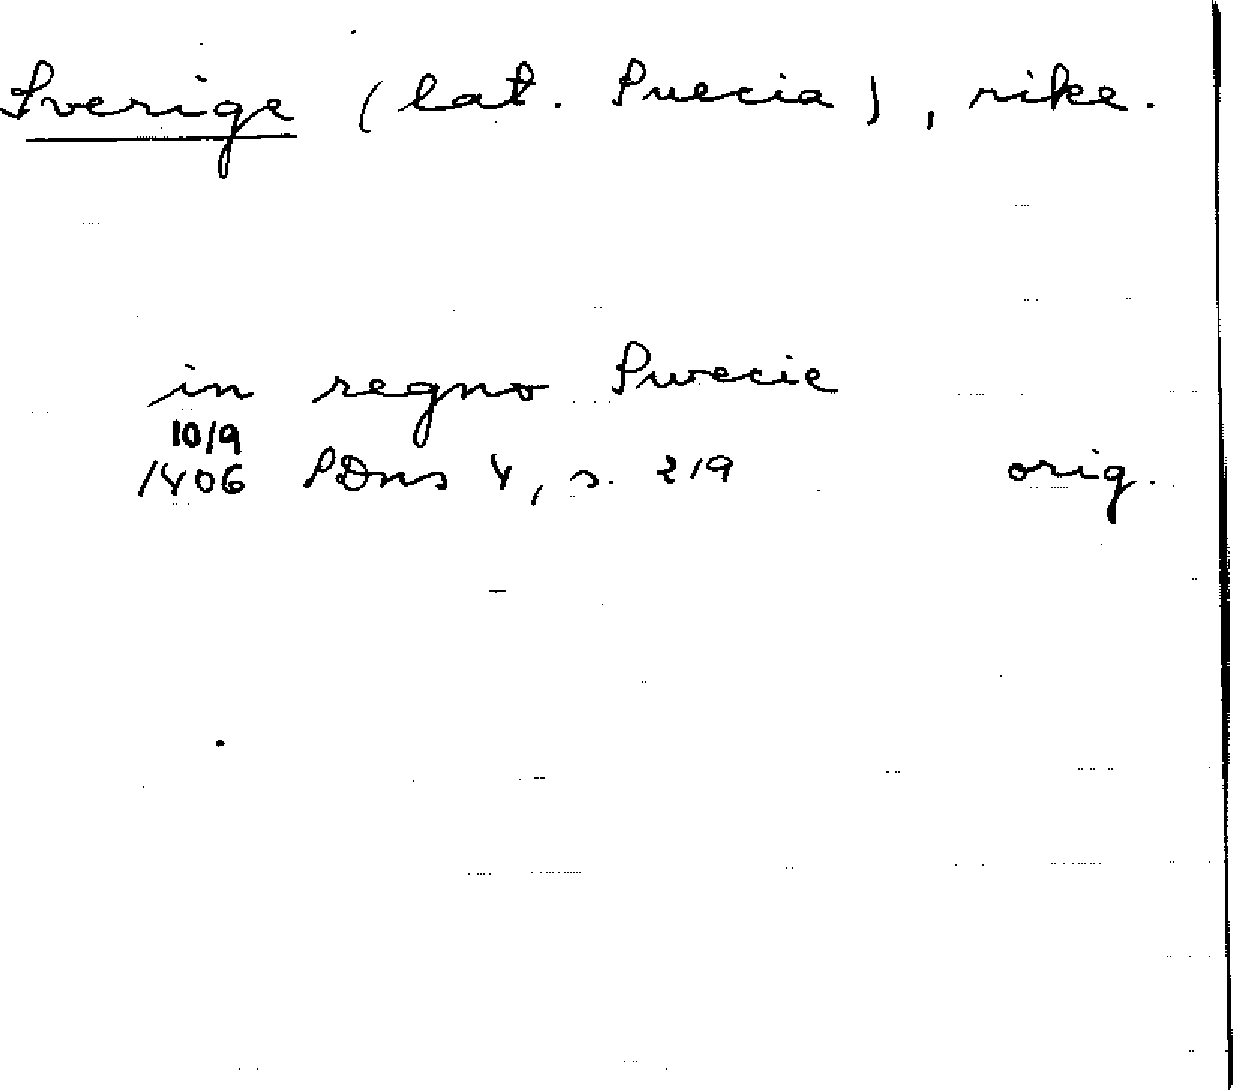 Sverige (lat. Suecia), rike.
in regno Swecie
10/9
1406 SDns 4, s. 219 orig.